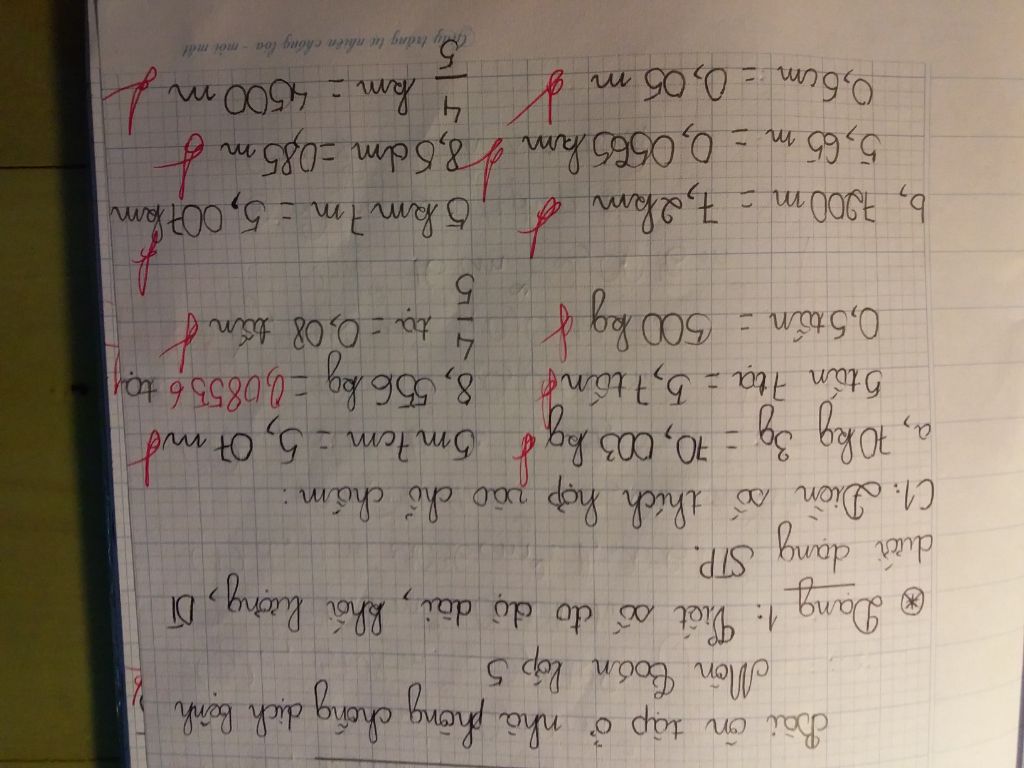 Bài ôn tập ở nhà phòng chống dịch bệnh
Môn Toán lớp 5
* Dạng 1: Viết số đo độ dài, khối lượng, DT
dưới dạng STP.
C1: Điền số thích hợp vào chỗ chấm:
a, 10kg 3g = 10,003kg 5m7cm = 5,07m
5 tấn 7 tạ = 5,7 tấn 8,556kg = 0,08556 tạ
0,5 tấn = 500kg 4/5 tạ = 0,08 tấn
b, 7200m = 7,2km 5km7m = 5,007km
5,65m = 0,0565km 8,5dm = 0,85m
0,5cm = 0,05m 4/5 km = 4500m
Giấy trắng tự nhiên chống lóa - mỏi mắt